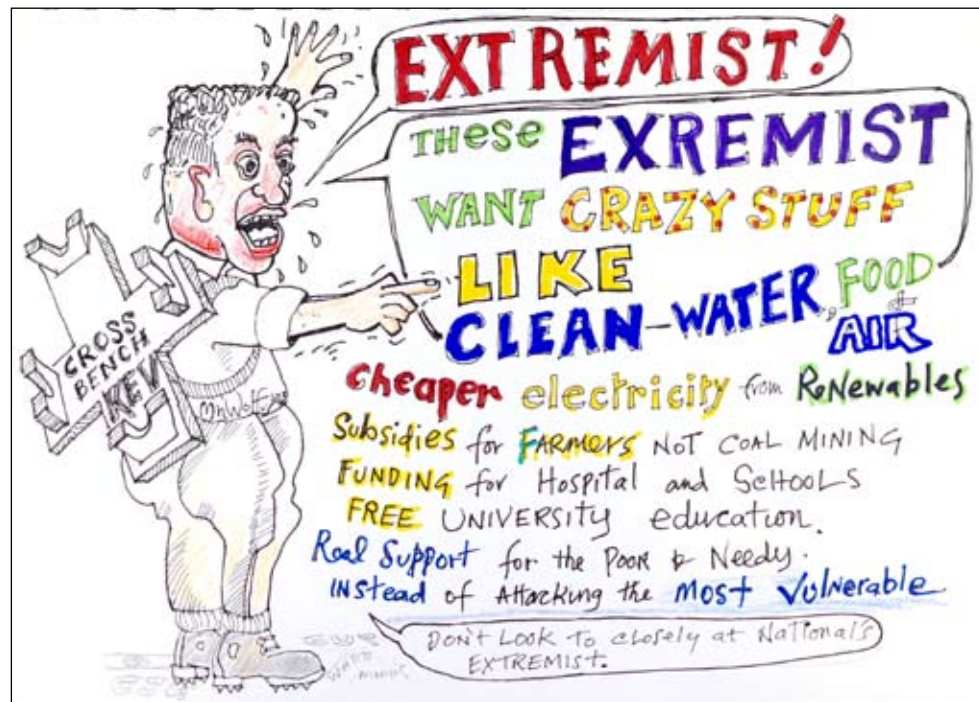 EXTREMIST!
THESE EXREMIST
WANT CRAZY STUFF
LIKE
CLEAN-WATER, FOOD
& AIR
Cheaper electricity from ReNewables
Subsidies for FARMERS NOT COAL MINING
FUNDING for Hospital and SCHOOLS
FREE UNIVERSITY education.
Real Support for the Poor & Needy.
INstead of Attacking the most Vulnerable
DON'T LOOK TO closely at National's
EXTREMIST.
CROSS
BENCH
KEV